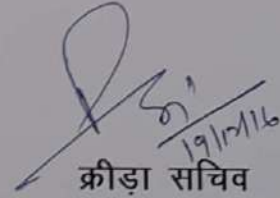 19/12/16
क्रीड़ा सचिव